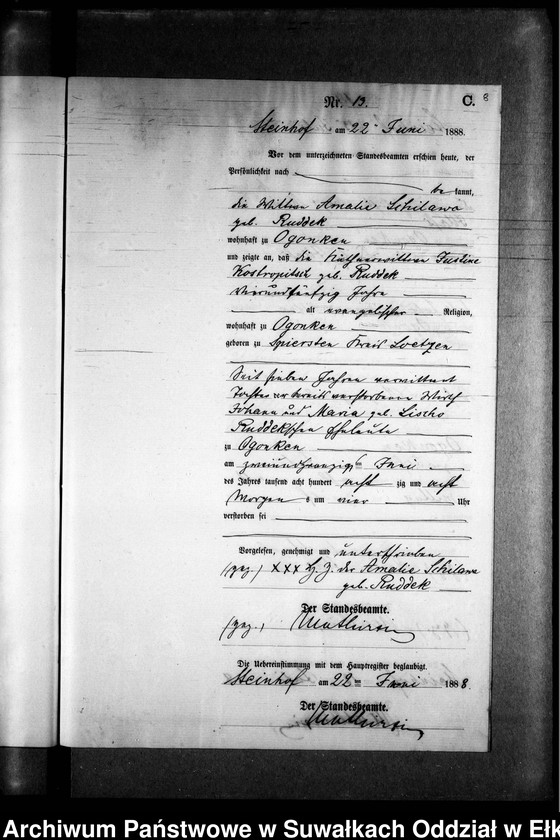 Nr. 13. C. 8
Steinhof am 22 Juni 1888.
Vor dem unterzeichneten Standesbeamten erschien heute, der
Persönlichkeit nach
be kannt,
die Wittwe Amalie Schilawa
geb. Ruddek
wohnhaft zu Ogonken
und zeigte an, daß die Käthnerwittwe Justine
Kostropitsch geb. Ruddek
vierundfünfzig Jahre
alt evangelischer Religion,
wohnhaft zu Ogonken
geboren zu Spiersten Kreis Loetzen
Seit sieben Jahren verwittwet
Tochter der bereits verstorbenen Wirth
Johann und Maria, geb. Lischo
Ruddekschen Eheleute
zu Ogonken
am zweiundzwanzigsten Juni
des Jahres tausend acht hundert acht zig und acht
Morgens um vier Uhr
verstorben sei
Vorgelesen, genehmigt und unterschrieben
(gez.) XXX Hz. der Amalie Schilawa
geb. Ruddek
Der Standesbeamte.
(gez.)
Die Uebereinstimmung mit dem Hauptregister beglaubigt.
Steinhof am 22ten Juni 1888.
Der Standesbeamte.
Archiwum Państwowe w Suwałkach Oddział w Ełk